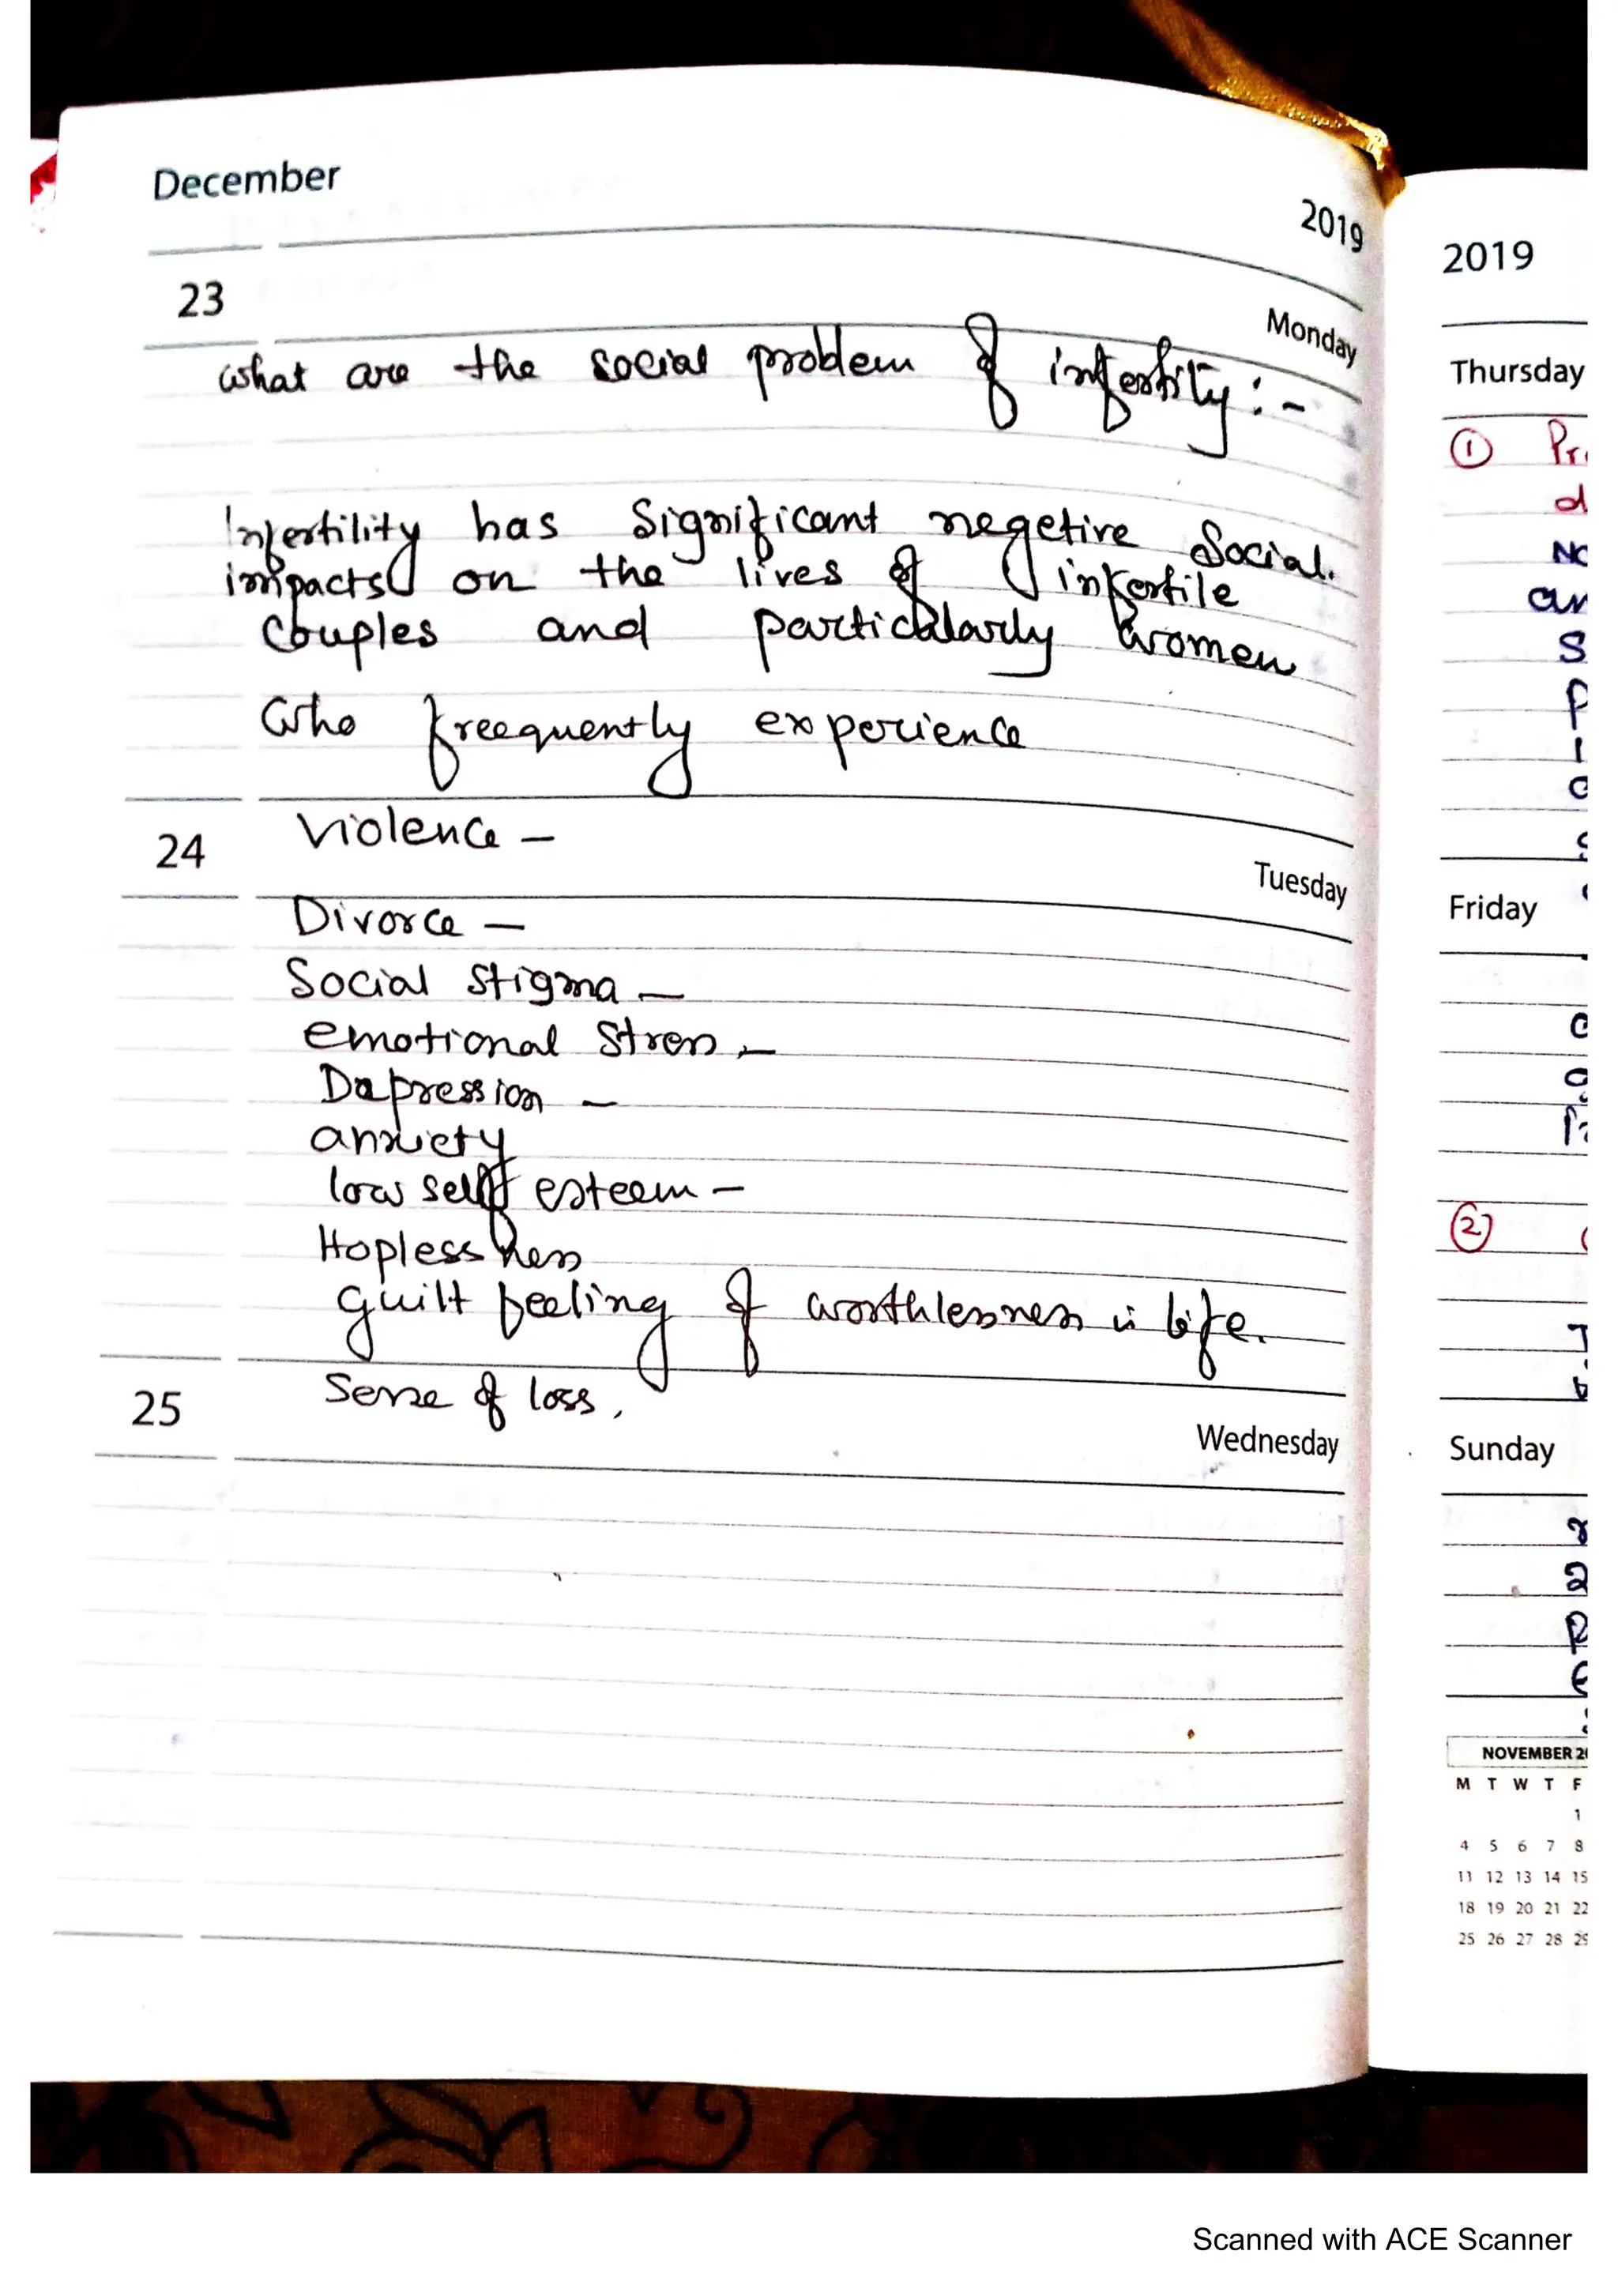 December
2019
23
Monday
what are the social problem of infertility :-
Infertility has significant negetive social.
impacts on the lives of infertile
couples and particularly women
who freequently experience
24
Violence -
Tuesday
Divorce -
Social stigma -
emotional stress -
Depression -
anxiety
low self esteem -
Hoplessness
guilt feeling of worthlessness in life.
25
Sense of loss,
Wednesday
2019
Thursday
①
②
Friday
Sunday
NOVEMBER
M T W T F
1
4 5 6 7 8
11 12 13 14 15
18 19 20 21 22
25 26 27 28 29
Scanned with ACE Scanner